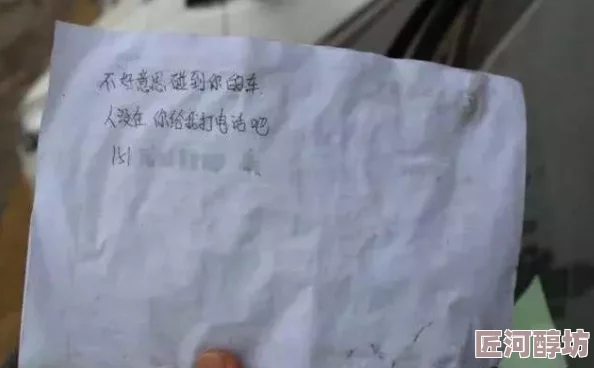 不好意思碰到你的车
人没在 你给我打电话吧
151
匠河醇坊